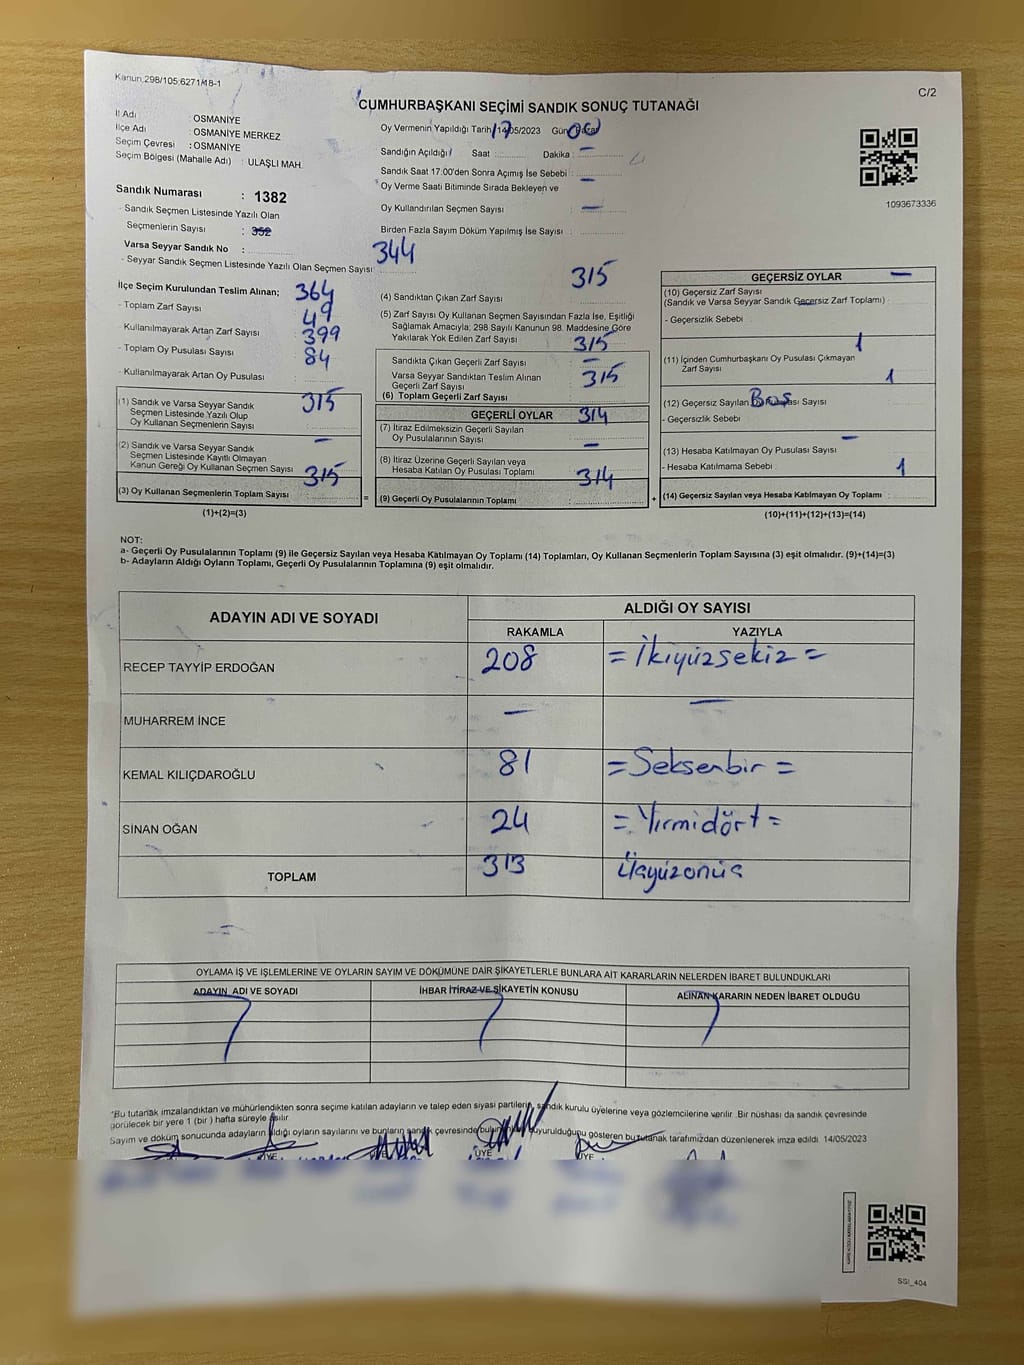 Kanun 298/105 6271/18-1
C/2
CUMHURBAŞKANI SEÇİMİ SANDIK SONUÇ TUTANAĞI
İl Adı : OSMANİYE
İlçe Adı : OSMANİYE MERKEZ
Seçim Çevresi : OSMANİYE
Seçim Bölgesi (Mahalle Adı) : ULAŞLI MAH.
Sandık Numarası : 1382
- Sandık Seçmen Listesinde Yazılı Olan
Seçmenlerin Sayısı : 352
344
Varsa Seyyar Sandık No :
- Seyyar Sandık Seçmen Listesinde Yazılı Olan Seçmen Sayısı:
İlçe Seçim Kurulundan Teslim Alınan;
364
- Toplam Zarf Sayısı
49
- Kullanılmayarak Artan Zarf Sayısı
399
- Toplam Oy Pusulası Sayısı
84
- Kullanılmayarak Artan Oy Pusulası
315
(1) Sandık ve Varsa Seyyar Sandık
Seçmen Listesinde Yazılı Olup
Oy Kullanan Seçmenlerin Sayısı
–
(2) Sandık ve Varsa Seyyar Sandık
Seçmen Listesinde Kayıtlı Olmayan
Kanun Gereği Oy Kullanan Seçmen Sayısı
315
(3) Oy Kullanan Seçmenlerin Toplam Sayısı
=
(1)+(2)=(3)
Oy Vermenin Yapıldığı Tarih 14/05/2023 Gün Pazar
17 00
Sandığın Açıldığı Saat : Dakika :
–
Sandık Saat 17:00'den Sonra Açımış İse Sebebi :
–
Oy Verme Saati Bitiminde Sırada Bekleyen ve
Oy Kullandırılan Seçmen Sayısı :
–
Birden Fazla Sayım Döküm Yapılmış İse Sayısı :
315
(4) Sandıktan Çıkan Zarf Sayısı
(5) Zarf Sayısı Oy Kullanan Seçmen Sayısından Fazla İse, Eşitliği
Sağlamak Amacıyla; 298 Sayılı Kanunun 98. Maddesine Göre
Yakılarak Yok Edilen Zarf Sayısı
315
Sandıkta Çıkan Geçerli Zarf Sayısı
–
Varsa Seyyar Sandıktan Teslim Alınan
Geçerli Zarf Sayısı
315
(6) Toplam Geçerli Zarf Sayısı
GEÇERLİ OYLAR
314
(7) İtiraz Edilmeksizin Geçerli Sayılan
Oy Pusulalarının Sayısı
–
(8) İtiraz Üzerine Geçerli Sayılan veya
Hesaba Katılan Oy Pusulası Toplamı
314
(9) Geçerli Oy Pusulalarının Toplamı
+
1093673336
GEÇERSİZ OYLAR
–
(10) Geçersiz Zarf Sayısı
(Sandık ve Varsa Seyyar Sandık Geçersiz Zarf Toplamı)
- Geçersizlik Sebebi
1
(11) İçinden Cumhurbaşkanı Oy Pusulası Çıkmayan
Zarf Sayısı
1
(12) Geçersiz Sayılan Oy Pusulası Sayısı
Boş
- Geçersizlik Sebebi
–
(13) Hesaba Katılmayan Oy Pusulası Sayısı
- Hesaba Katılmama Sebebi
1
(14) Geçersiz Sayılan veya Hesaba Katılmayan Oy Toplamı
(10)+(11)+(12)+(13)=(14)
NOT:
a- Geçerli Oy Pusulalarının Toplamı (9) ile Geçersiz Sayılan veya Hesaba Katılmayan Oy Toplamı (14) Toplamları, Oy Kullanan Seçmenlerin Toplam Sayısına (3) eşit olmalıdır. (9)+(14)=(3)
b- Adayların Aldığı Oyların Toplamı, Geçerli Oy Pusulalarının Toplamına (9) eşit olmalıdır.
ADAYIN ADI VE SOYADI ALDIĞI OY SAYISI
RAKAMLA YAZIYLA
RECEP TAYYİP ERDOĞAN 208 = İkiyüzsekiz =
MUHARREM İNCE – –
KEMAL KILIÇDAROĞLU 81 = Seksenbir =
SİNAN OĞAN 24 = Yirmidört =
TOPLAM 313 Üçyüzonüç
OYLAMA İŞ VE İŞLEMLERİNE VE OYLARIN SAYIM VE DÖKÜMÜNE DAİR ŞİKAYETLERLE BUNLARA AİT KARARLARIN NELERDEN İBARET BULUNDUKLARI
ADAYIN ADI VE SOYADI İHBAR İTİRAZ VE ŞİKAYETİN KONUSU ALINAN KARARIN NEDEN İBARET OLDUĞU
*Bu tutanak imzalandıktan ve mühürlendikten sonra seçime katılan adayların ve talep eden siyasi partilerin, sandık kurulu üyelerine veya gözlemcilerine verilir. Bir nüshası da sandık çevresinde
görülecek bir yere 1 (bir) hafta süreyle asılır.
Sayım ve döküm sonucunda adayların aldığı oyların sayılarını ve bunların sandık çevresinde duyurulduğunu gösteren bu tutanak tarafımızdan düzenlenerek imza edildi. 14/05/2023
ÜYE ÜYE ÜYE ÜYE
SSI_404